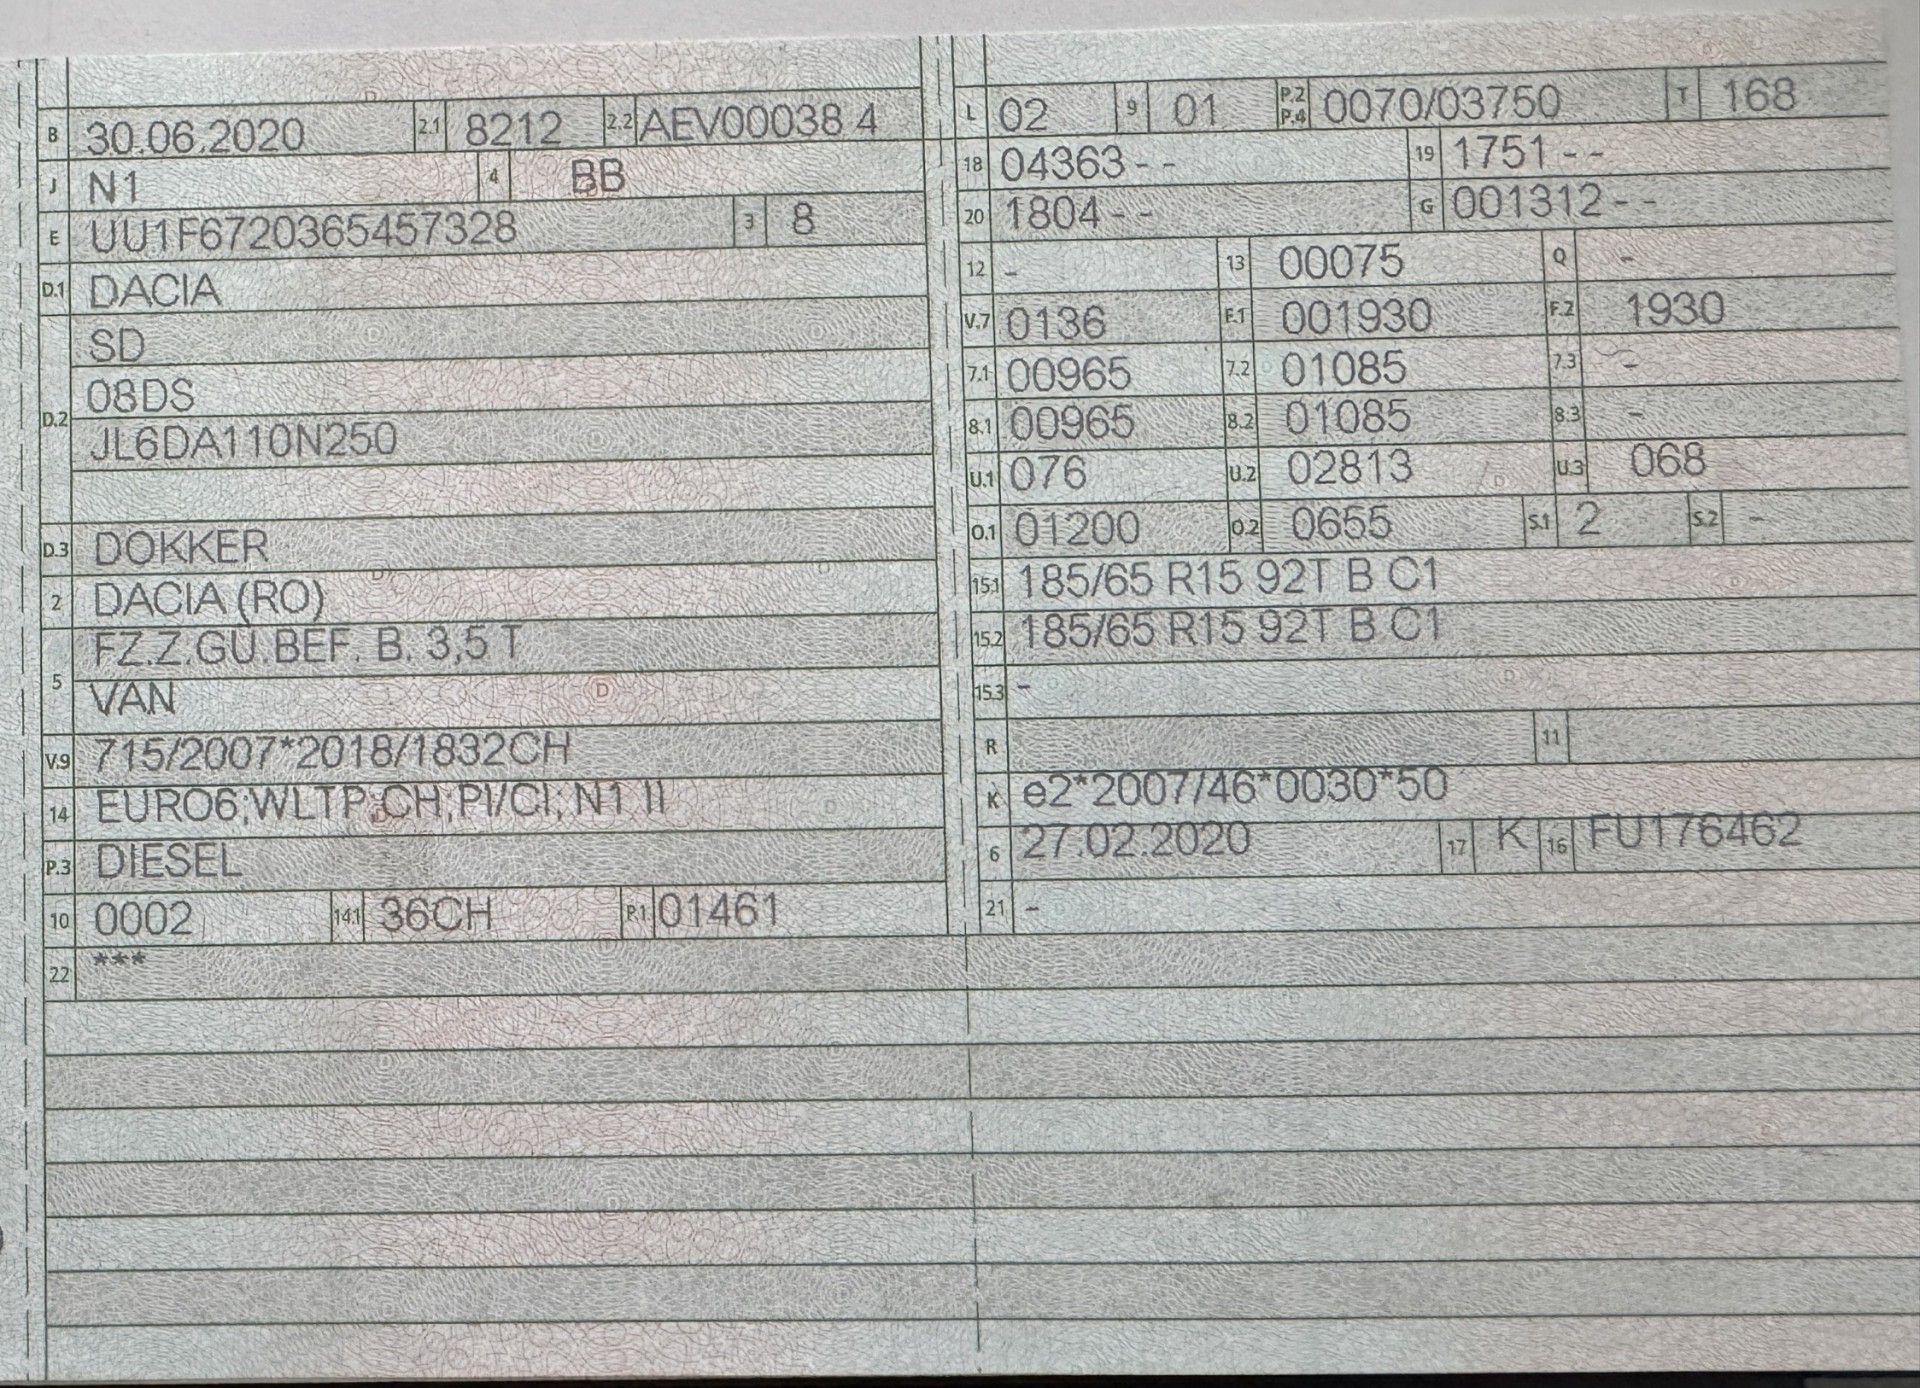 B 30.06.2020 2.1 8212 2.2 AEV00038 4
J N1 4 BB
E UU1F6720365457328 3 8
D.1 DACIA
D.2 SD
08DS
JL6DA110N250
D.3 DOKKER
2 DACIA (RO)
5 FZ.Z.GÜ.BEF. B. 3,5 T
VAN
V.9 715/2007*2018/1832CH
14 EURO6;WLTP;CH;PI/CI; N1 II
P.3 DIESEL
10 0002 14.1 36CH P.1 01461
22 ***
L 02 9 01 P.2 P.4 0070/03750 T 168
18 04363 - - 19 1751 - -
20 1804 - - G 001312 - -
12 - 13 00075 Q -
V.7 0136 F.1 001930 F.2 1930
7.1 00965 7.2 01085 7.3 -
8.1 00965 8.2 01085 8.3 -
U.1 076 U.2 02813 U.3 068
O.1 01200 O.2 0655 S.1 2 S.2 -
15.1 185/65 R15 92T B C1
15.2 185/65 R15 92T B C1
15.3 -
R 11
K e2*2007/46*0030*50
6 27.02.2020 17 K 16 FU176462
21 -